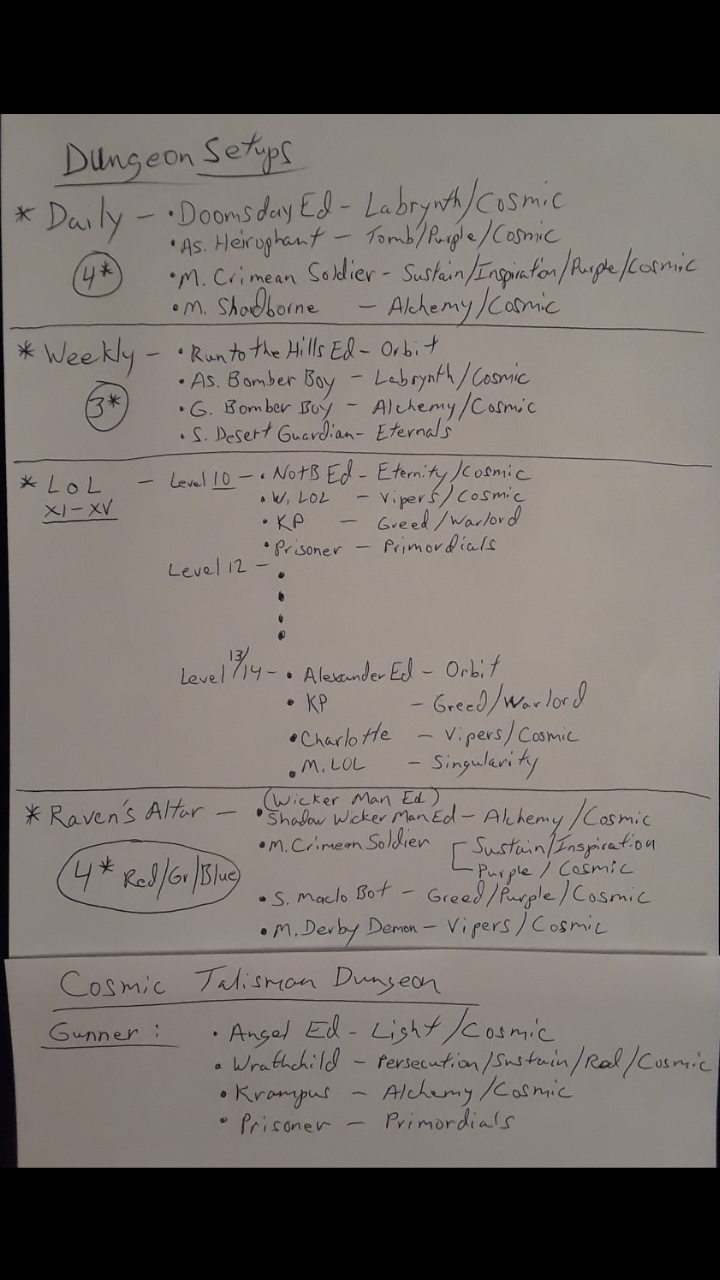 Dungeon Setups
* Daily - • Doomsday Ed - Labrynth/Cosmic
• As. Heirophant - Tomb/Purple/Cosmic
4* • M. Crimean Soldier - Sustain/Inspiration/Purple/Cosmic
• M. Shardborne - Alchemy/Cosmic
* Weekly - • Run to the Hills Ed - Orbit
• As. Bomber Boy - Labrynth/Cosmic
3* • G. Bomber Boy - Alchemy/Cosmic
• S. Desert Guardian - Eternals
* LOL - Level 10 - • NotB Ed - Eternity/Cosmic
XI-XV • W. LOL - Vipers/Cosmic
• KP - Greed/Warlord
• Prisoner - Primordials
Level 12 - •
•
•
•
Level 13/14 - • Alexander Ed - Orbit
• KP - Greed/Warlord
• Charlotte - Vipers/Cosmic
• M. LOL - Singularity
(Wicker Man Ed)
* Raven's Altar - • Shadow Wicker Man Ed - Alchemy/Cosmic
• M. Crimean Soldier [ Sustain/Inspiration
Purple/Cosmic
4* Red/Gr/Blue
• S. Maclo Bot - Greed/Purple/Cosmic
• M. Derby Demon - Vipers/Cosmic
Cosmic Talisman Dungeon
Gunner: • Angel Ed - Light/Cosmic
• Wrathchild - Persecution/Sustain/Red/Cosmic
• Krampus - Alchemy/Cosmic
• Prisoner - Primordials